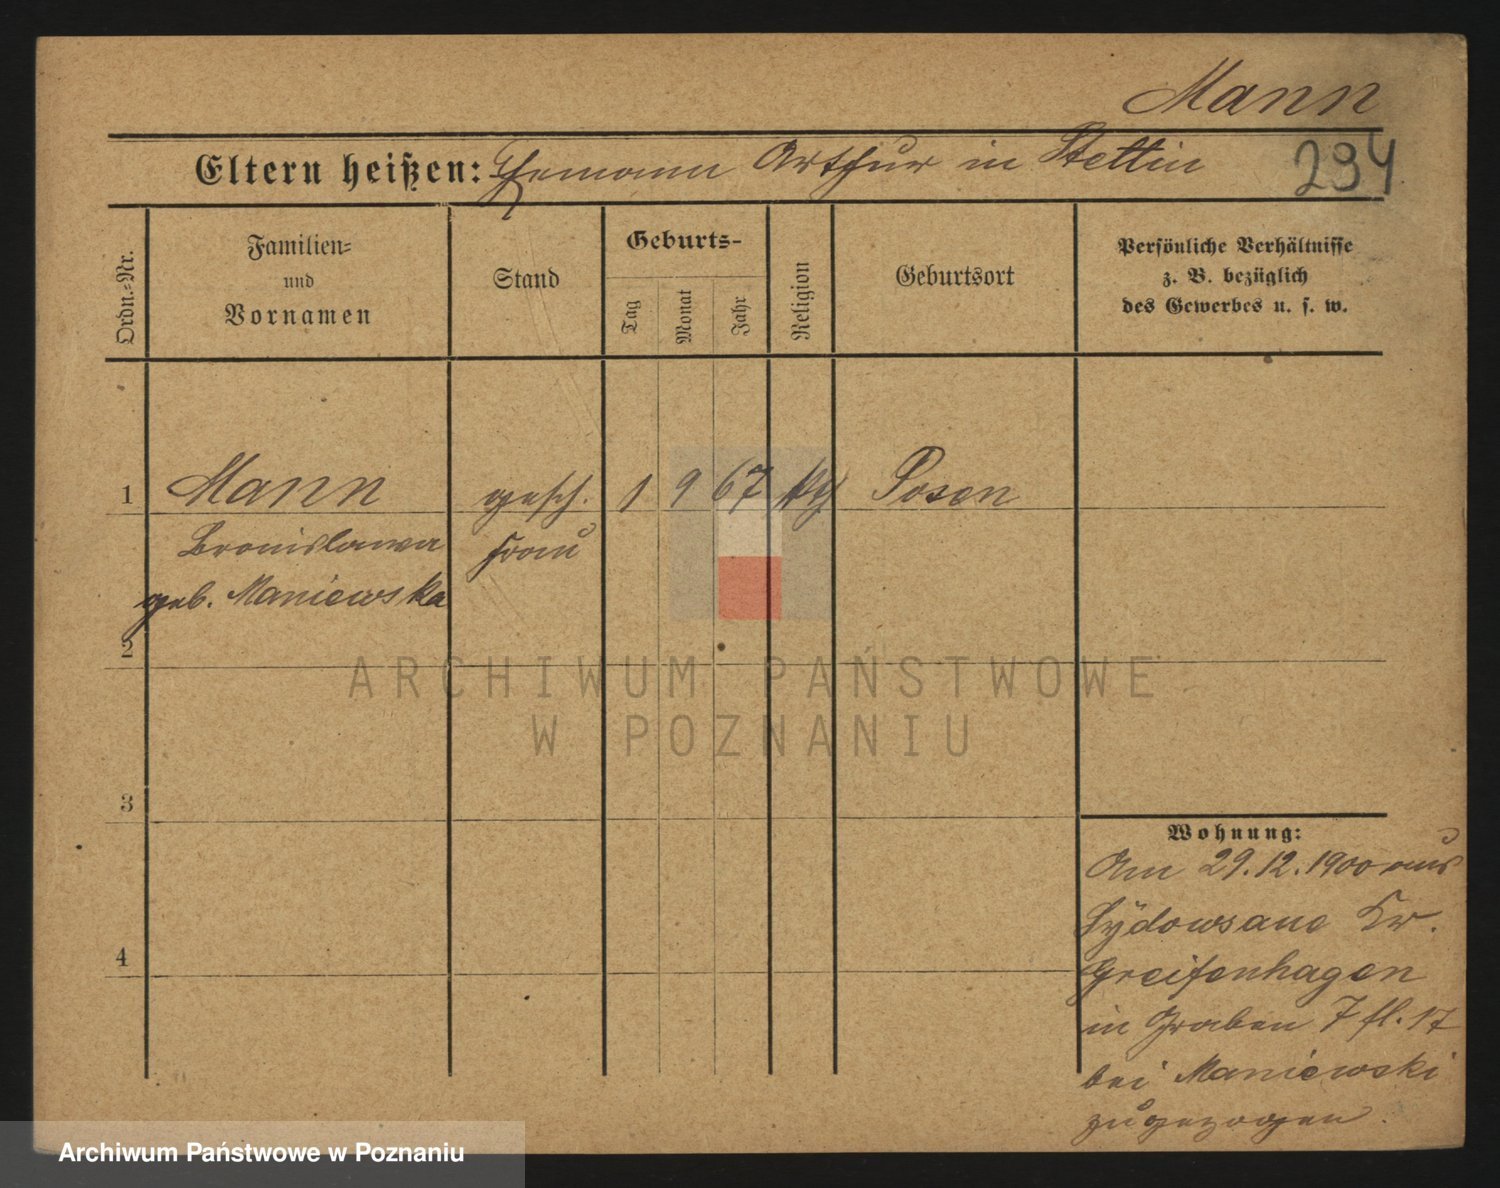 Mann
Eltern heißen: Ehemann Arthur in Stettin
234
Ordn.=Nr.
Familien= und Vornamen
Stand
Geburts-
Tag
Monat
Jahr
Religion
Geburtsort
Persönliche Verhältnisse
z. B. bezüglich
des Gewerbes u. s. w.
1 Mann gesch. 1 9 67 kth Posen
Bronislawa Frau
geb. Maniewska
2
ARCHIWUM PAŃSTWOWE
W POZNANIU
3
Wohnung:
Am 29.12.1900 aus
Sydowsaue Kr.
4
Greifenhagen
in Graben 7 fl. 17
bei Maniewski
zugezogen.
Archiwum Państwowe w Poznaniu